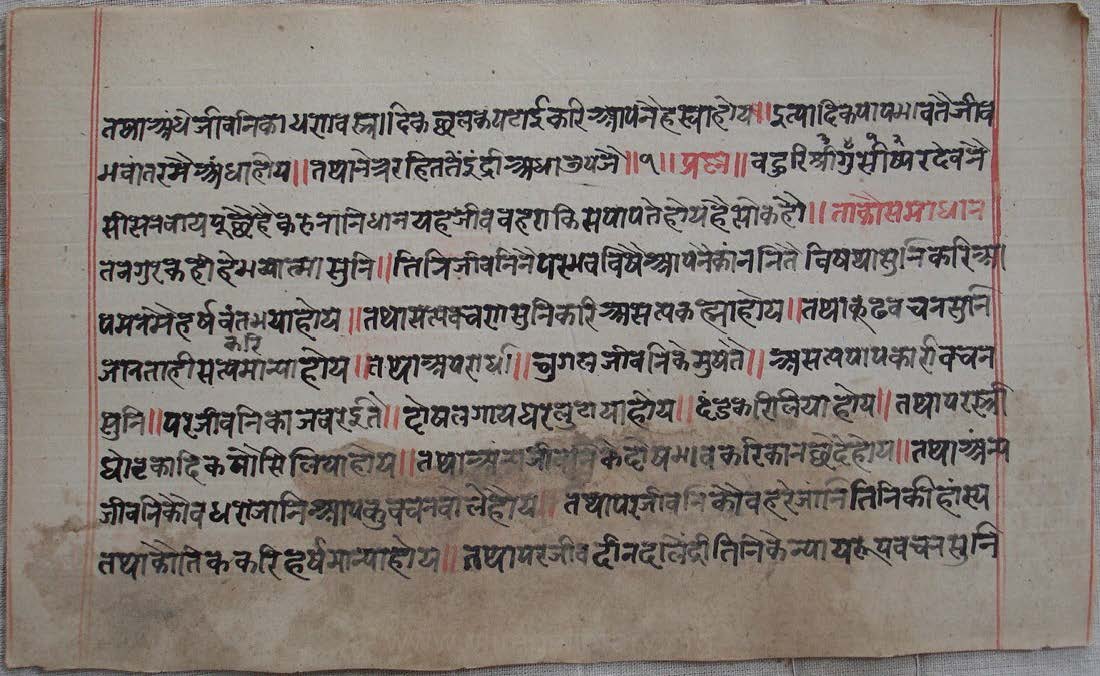 तथा अंधे जीवनिका धरा वस्त्रादिक छल कपटाई करि आपनै हरया होय॥ इत्यादिक पाप भावतै जीव
भवांतर मै अंधा होय॥ तथा नेत्र रहित तेंइंद्री अधा उपजै॥१॥ प्रश्न॥ बहुरि श्री गुर सीष्य देव नै
सीस नवाय पूछै है करुनानिधान यह जीव बहरा किस पापतै होय है सो कहौ॥ ताकौ समाधान
तब गुर कही हे भव्यात्मा सुनि॥ तिनि जीवनिनै परभव विषै आपनै कांननितै विषथा सुनि करि आ
प मनमै हर्षवंत भया होय॥ तथा सत्य वचरा सुनि करि असत्य कह्या होय॥ तथा झूठ वचन सुनि
करि
जानता ही सत्य मान्या होय॥ तथा अपराधी॥ चुगल जीवनिके मुषतै॥ असत्य पापकारी वचन
सुनि॥ पर जीवनि को जबरईतै॥ दोष लगाय घर लुटाया होय॥ दंड करि लिया होय॥ तथा परस्त्री
घोटकादिक षोसि लिया होय॥ तथा अंन्य जीवनिके दोष भाव करि कान छेदे होय॥ तथा अंन्य
जीवनिकौ बधरा जानि आप कुवचन बोले होय॥ तथा पर जीवनिकौ बहरे जांनि तिनिकी हांस्य
तथा कौतिक करि हर्ष मान्या होय॥ तथा पर जीव दीन दलिद्री तिनिके न्याय रूप वचन सुनि